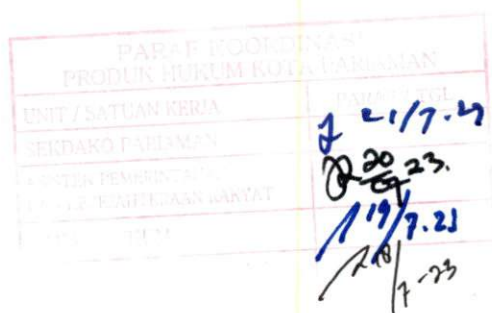 PARAF KOORDINASI
PRODUK HUKUM KOTA PARIAMAN
UNIT / SATUAN KERJA PARAF TGL
SEKDAKO PARIAMAN 21/7-23
ASISTEN PEMERINTAHAN 20/07 23.
KESEJAHTERAAN RAKYAT 19/7.23
18/7-23